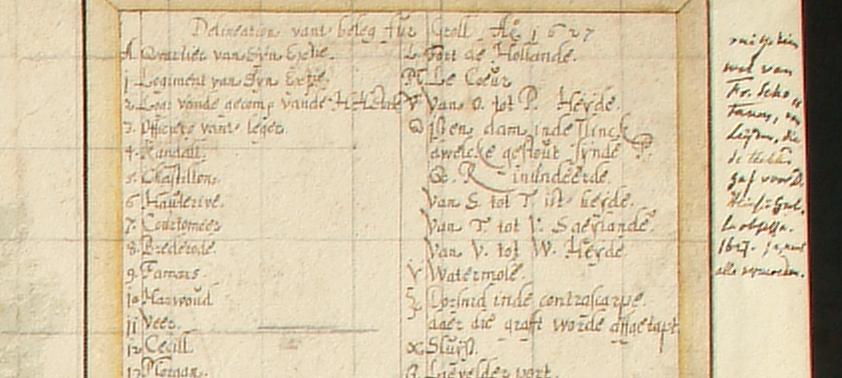 Delineation vant beleg fur Groll Aº 1627
A Quartier van Syn Extie.
1 Logiment van Syn Extie.
2 Log: vande gecomp vande H.H.
3. Officiers vant leger.
4. Randall.
5. Chastillon.
6 Hauterive.
7. Courtomeer
8. Brederode.
9. Famars
10 Harwoud
11 Veer.
12 Cecill
13 Morgan.
L Fort de Hollande.
M Le Coeur
Van O. tot P. Heyde.
Q Is en dam inde Slinck
dwelcke gestout synde P.
Q. R inundeerde.
Van S. tot T. ist heyde.
Van T. tot V. Saeylande.
Van V. tot W. Heyde.
Watermole.
inde contrascarpe.
daer die graft worde affgetapt
Sluys.
Lievelder port.
wel van
Fr. Scho
1627.